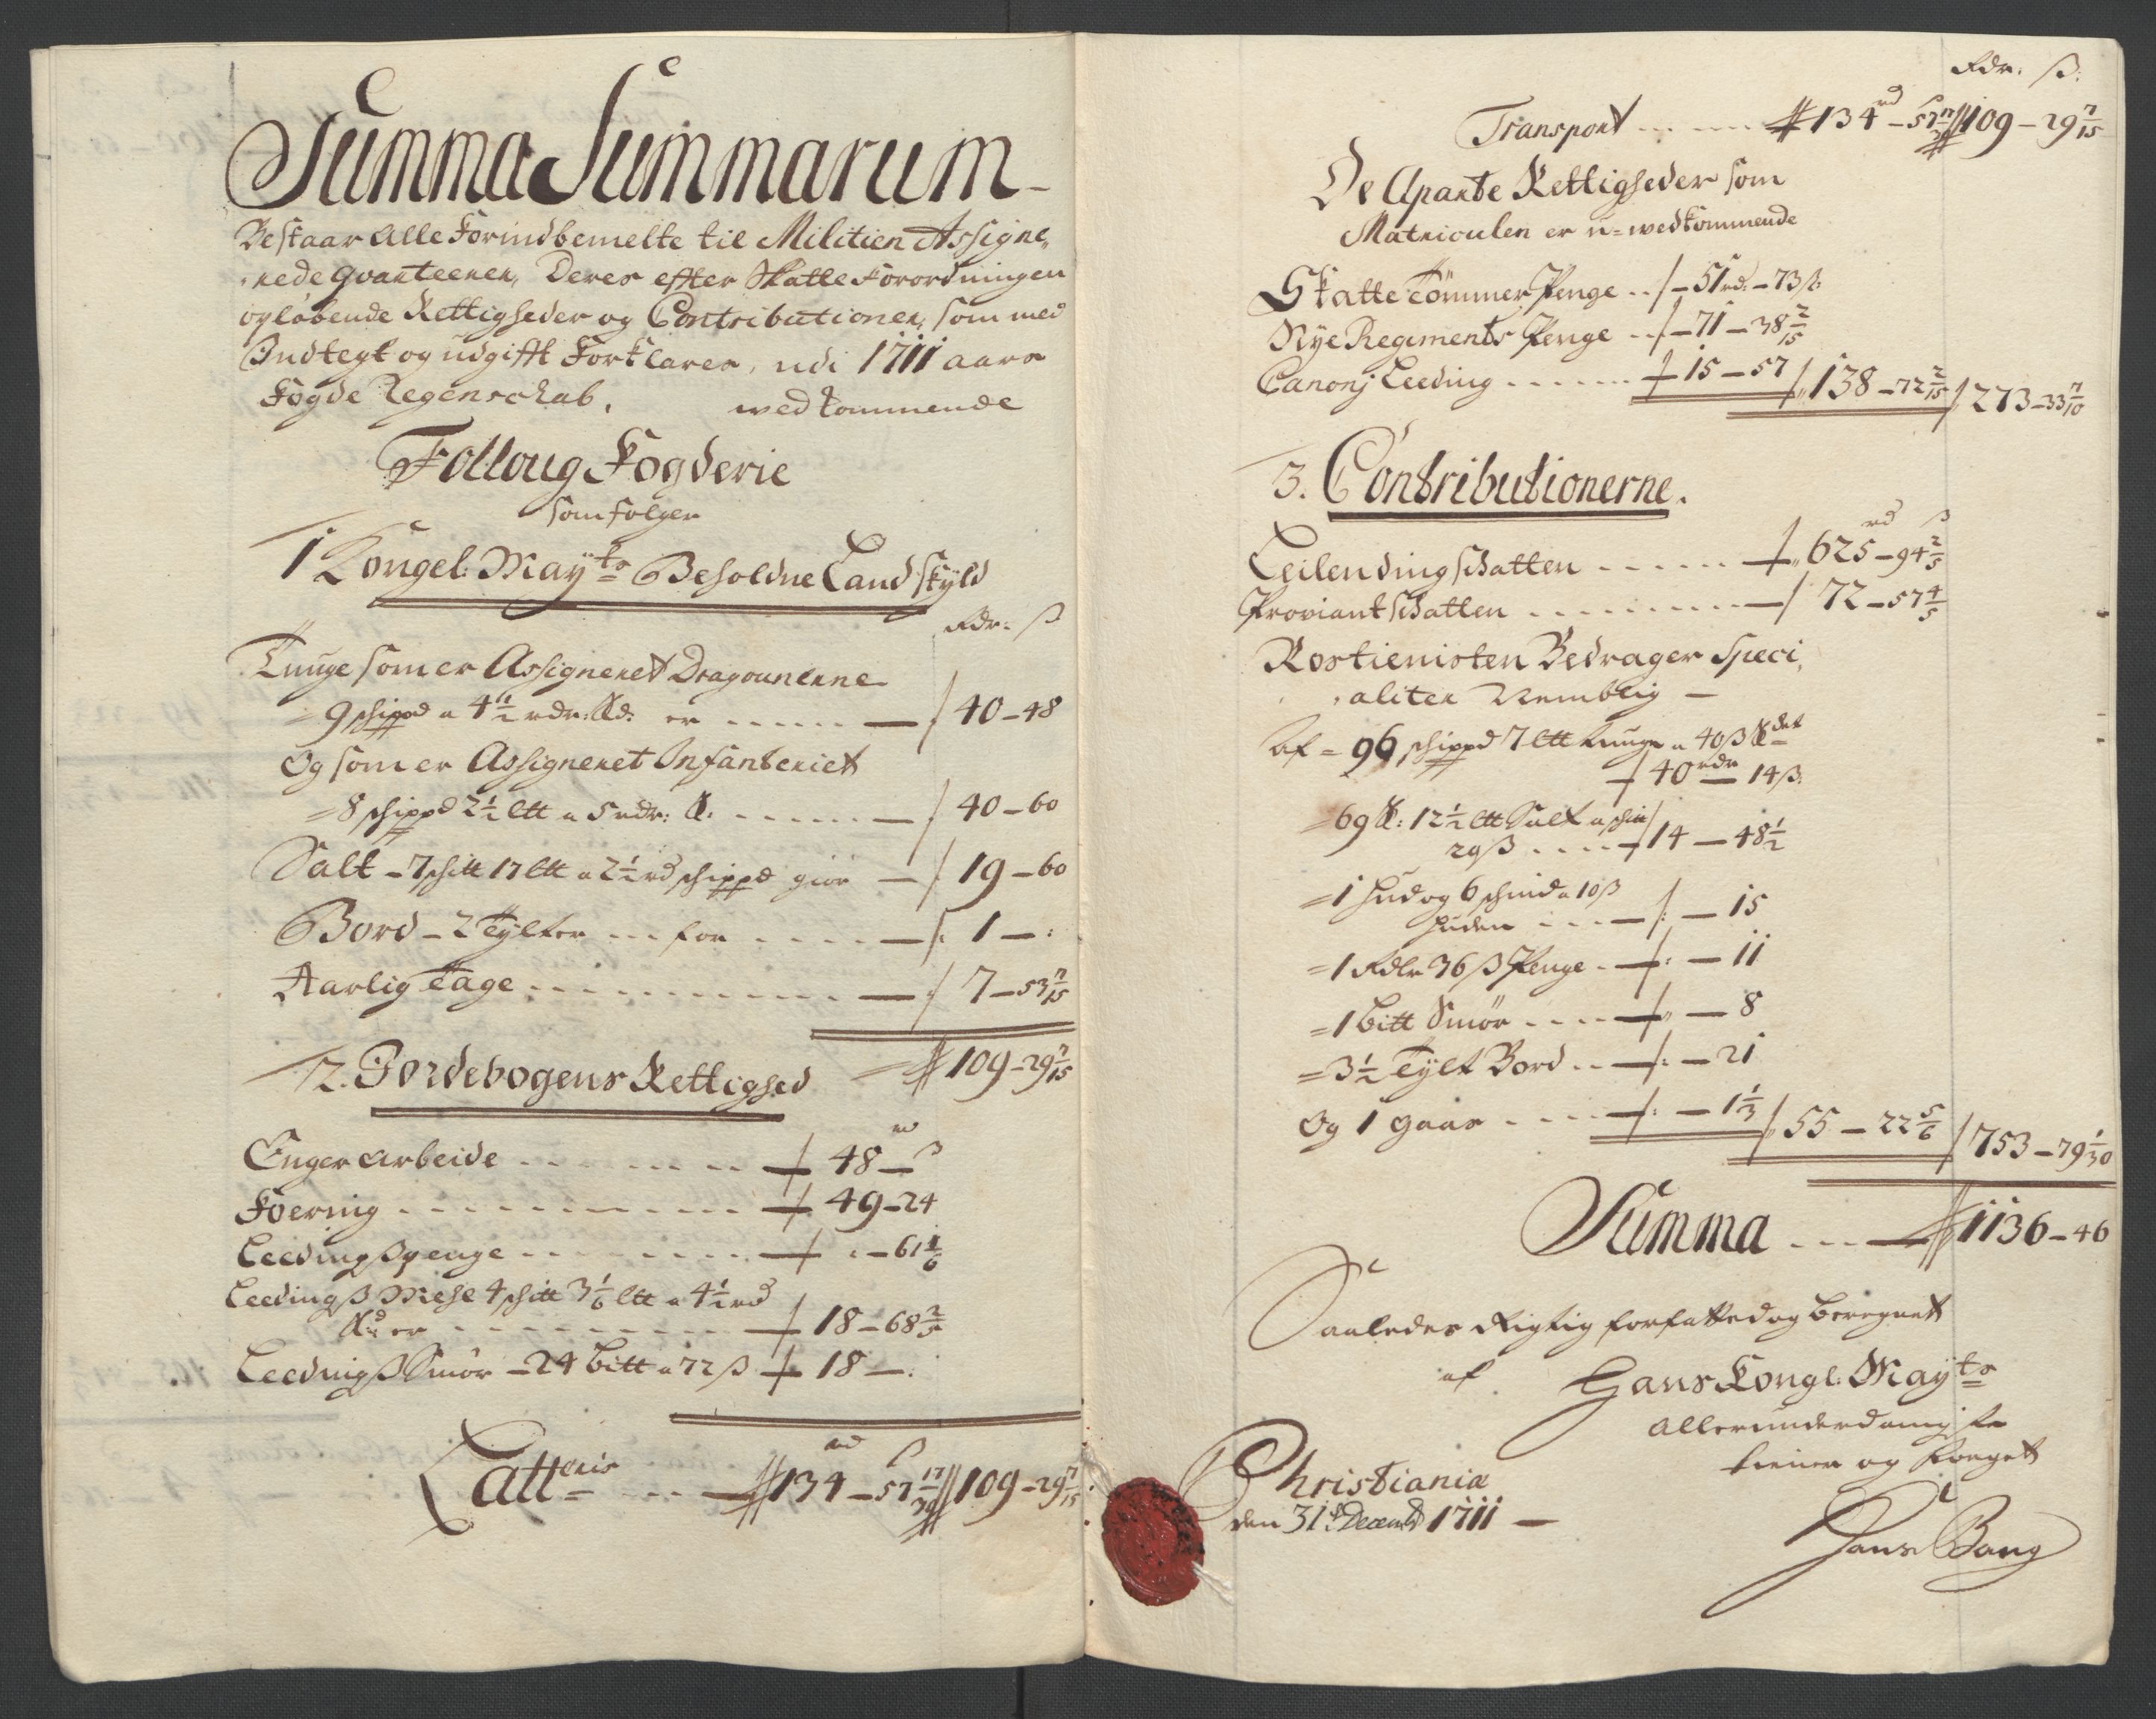 Summa Summarum
Bestaar Alle Forindbemelte til Militien Assigne,
,rede qvanteerer, Deres efter Skatte Forordningen
og løbende Rettigheder og Contributioner, som med
Indtegt og udgifft Forklarer, udi 1711 aars
Fogde Regenschab, wedkommende
Folloug Fogderie
som følger
1 Kongel: May:ts Beholdne Landskyld
Rdr: ß
Tunge som er Assigneret Dragounerne
= 9 schippd a 4½ rdr: er ...... 40 – 48
Og som er Assigneret Infanteriet
= 8 schippd 2½ Ltt a 5 rdr: ...... 40 – 60
Salt – 7 schtt 17 Ltt a 2½ rd schippd giør – 19 – 60
Bord – 2 Tylter ... for ...... 1 – :
Aarlig Tage ...... 7 – 53 7/15
109 – 29 7/15
2. Jordebogens Rettighed
rd ß
Enger arbeide ...... 48 –
Foering ...... 49 – 24
Leedingßpenge ...... : – 61 1/6
Leedingß Mehl 4 schtt 3 1/6 Ltt a 4½ rd
er ...... 18 – 68 2/5
Leedingß Smør – 24 bitt a 72 ß 18 – :
Latteris ...... 134 rd – 57 17/30 ß 109 – 29 7/15
Rdr. ß.
Transport ...... 134 rd – 57 17/30 109 – 29 7/15
De Aparte Rettigheder som
Matriculen er u=wedkommende
Skatte Tømmer Penge .. – 51 rd: – 73 ß:
Nye Regiments Penge .. – 71 – 38 2/15
Canonj Leeding ...... 15 – 57 138 – 72 2/15 273 – 33 7/10
3. Contributionerne.
rd ß
Leilending schatten ...... 625 – 94 2/5
Proviant schatten ...... 72 – 57 4/5
Rostienisten Bedrager Speci,
,aliter Nemblig –
Af = 96 schippd 7 Ltt tunge a 40 ß
40 rdr – 14 ß:
= 69 : 12½ Ltt Salt a
20 ß .... 14 – 48½
= 1 Hud og 6 schind a 10 ß
huden ... : – 15
= 1 Rdlr 36 ß Penge . : – 11
= 1 bitt Smør .... – 8
= 3½ Tylt Bord .. : – 21
Og 1 gaas .... : – 1 1/3 55 – 22 5/6 753 – 79 1/30
Summa ... 1136 – 46
Saaledes Rigtig forfatted og beregnett
af Hans Kongl: May:ts
allerunderdanigste
tiener og foeget
Christiania
den 31te Decemb 1711 –
Hans Bang